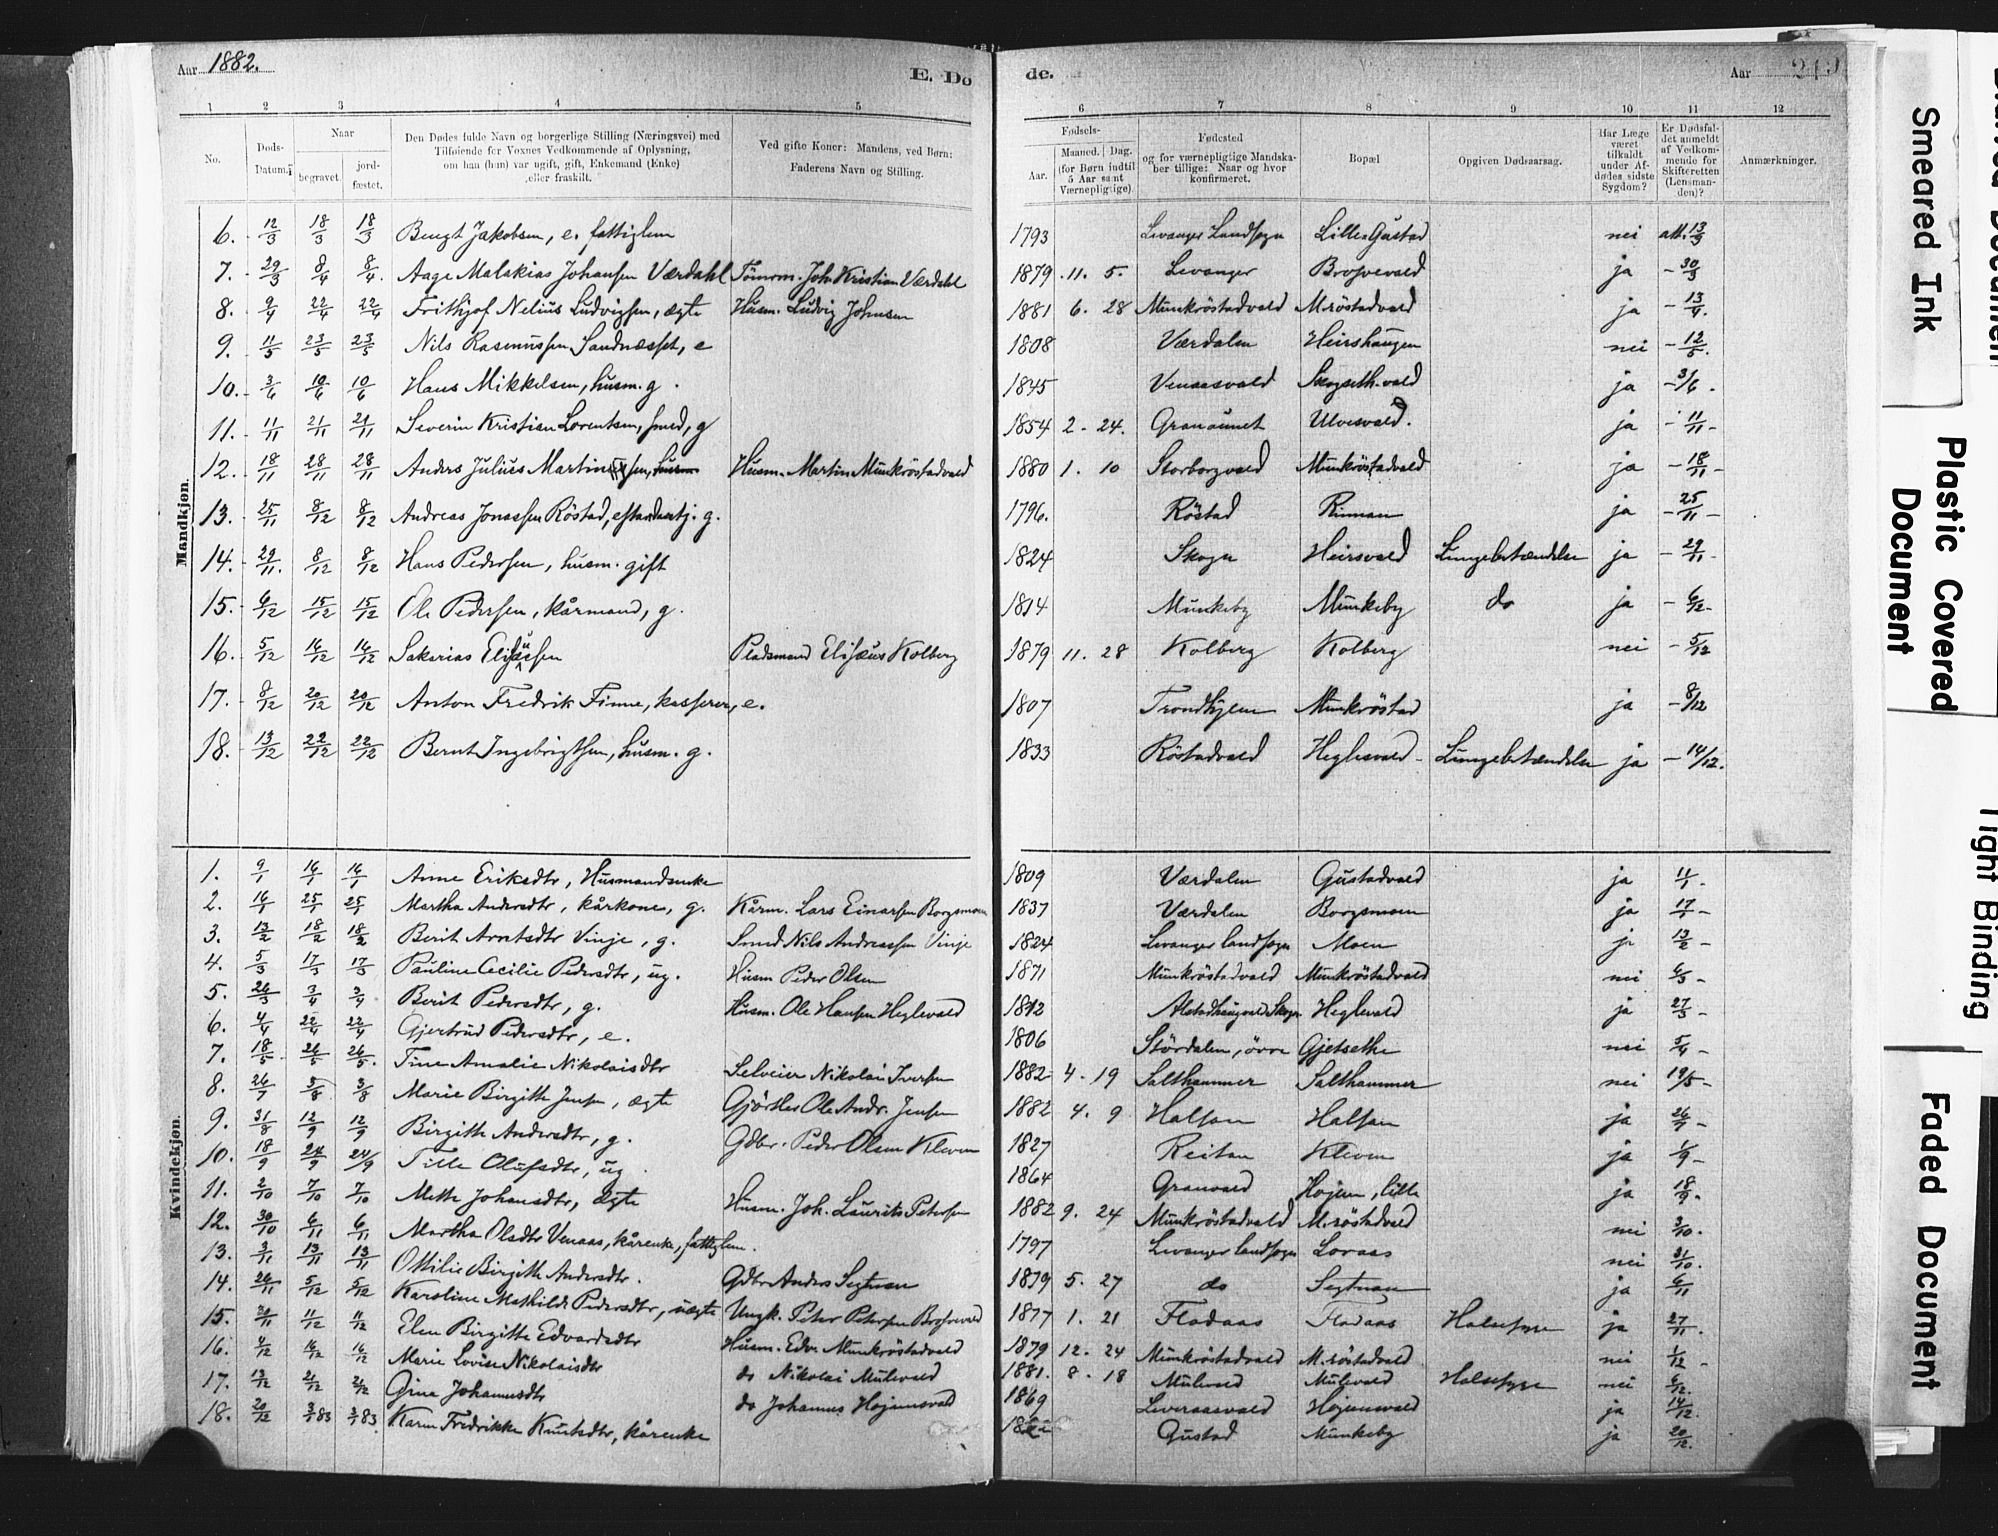 Aar 1882.
E. Do
de.
Aar 219
1 2 3 4 5 6 7 8 9 10 11 12
No.
Døds-Datum.
Naar
begravet.
jord-fæstet.
Den Dødes fulde Navn og borgerlige Stilling (Næringsvei) med
Tilføiende for Voxnes Vedkommende af Oplysning,
om han (hun) var ugift, gift, Enkemand (Enke)
eller fraskilt.
Ved gifte Koner: Mandens, ved Børn:
Faderens Navn og Stilling.
Fødsels-
Aar.
Maaned. Dag.
(for Børn indtil
5 Aar samt
Værnepligtige)
Fødested
og for værnepligtige Mandska-
ber tillige: Naar og hvor
konfirmeret.
Bopæl
Opgiven Dødsaarsag.
Har Læge
været
tilkaldt
under Af-
dødes sidste
Sygdom?
Er Dødsfal-
det anmeldt
af Vedkom-
mende for
Skifteretten
(Lensman-
den)?
Anmærkninger.
Mandkjøn.
6. 12/3 18/3 18/3 Bengt Jakobsen, e. fattiglem 1793 Levanger Landsogn Lille-Gustad nei att. 13/3
7. 29/3 8/4 8/4. Aage Malakias Johansen Værdahl Tømrm. Joh. Kristian Værdahl 1879 11. 5. Levanger Brosvevald ja - 30/3
8. 9/4 22/4 22/4 Frithjof Nelius Ludvigsen, ægte Husm. Ludvig Johnsen 1881 6. 28 Munkröstadvald M.röstadvald ja - 13/4.
9. 11/5 23/5 23/5 Nils Rasmussen Sandnesset, e 1808 Værdalen Heirshaugen nei - 12/5.
10. 3/6 10/6 10/6 Hans Mikkelsen, husm. g. 1845 Venaasvald Skogseth-vald ja - 3/6.
11. 11/11 21/11 21/11 Severin Kristian Lorentsen, smed, g 1854 2 - 24. Granaunet Ulvesvald. ja - 11/11 -
12. 18/11 28/11 28/11 Anders Julius Martinussen, Husm. Martin Munkröstadvald 1880 1. 10 Storborgvald Munkröstadvald ja - 18/11 -
13. 25/11 8/12 8/12 Andreas Jonassen Röstad, g. 1796. Röstad Rinnan ja - 25/11 -
14. 29/11. 8/12 8/12 Hans Pedersen, husm. gift 1824 Skogn Heirsvald Lungebetændelse ja - 29/11 -
15. 6/12 15/12 15/12 Ole Pedersen, kårmand, g. 1814 Munkeby Munkeby do ja - 6/12 -
16. 5/12 14/12 14/12 Sakarias Eliseussen Pladsmand Elisæus Kolberg 1879 11. 28 Kolberg Kolberg nei - 5/12
17. 8/12 20/12 20/12 Anton Fredrik Finne, kasserer, e. 1807 Trondhjem Munkröstad ja - 8/12
18. 13/12 22/12 22/12 Bernt Ingebrigtsen, husm. g. 1833 Röstadvald Heglesvald - Lungebetændelse ja - 14/12.
Kvindekjøn.
1. 9/1 14/1 14/1 Anne Eriksdtr, Husmandsenke 1809 Værdalen Gustadvald ja 11/1.
2. 14/1 25/1 25/1 Martha Andersdtr, kårkone, g. Kårm. Lars Einarsen Borgsmoen 1837 Værdalen Borgsmoen ja 17/1 -
3. 13/2 18/2 18/2 Berit Arntsdtr Vinje, g. Smed Nils Andreassen Vinje 1824 Levanger landsogn Moen ja 13/2 -
4. 5/3 17/3 17/3 Pauline Cecilie Pedersdtr, ug. Husm Peder Olsen 1871 Munkröstadvald Munkröstadvald nei 6/3 -
5. 26/3 3/4 3/4 Berit Pedersdtr, g. Husm. Ole Hansen Heglevald 1812 Alstadhaugvald Skogn Heglevald ja 27/3 -
6. 4/4 22/4 22/4 Gjertrud Pedersdtr, e. 1806 Stördalen, övre Gjetsethe nei 5/4 -
7. 18/5 26/5 26/5. Tine Amalie Nikolaisdtr Selveier Nikolai Iversen 1882 4. 19 Salthammer Salthammer nei 19/5 -
8. 26/7 3/8 3/8 Marie Birgitte Jensen, ægte Gjörtler Ole Andr. Jensen 1882 4. 9 Halsan Halsan ja 26/7 -
9. 31/8 12/9 12/9 Birgitte Andersdtr, g. Gdbr. Peder Olsen Kleven 1827 Reitan Kleven ja 1/9 -
10. 18/9 24/9 24/9 Tille Olufsdtr, ug. 1864 Granvald Hojem, lille ja 18/9.
11. 2/10 7/10 7/10 Mette Johansdtr, ægte Husm. Joh. Laurits Petersen 1882 9. 24 Munkröstadvald M.röstadvald nei 3/10.
12. 30/10 6/11 6/11 Martha Olsdtr Venaas, kårenke, fattiglem. 1797 Levanger landsogn Loraas nei 31/10.
13. 3/11 13/11 13/11 Ottilie Birgitte Andersdtr. Gdbr Anders Segtnan 1879 5. 27 do Segtnan ja 6/11
14. 26/11 5/12 5/12 Karoline Mathilde Pedersdtr, uægte Ungk. Peter Petersen Brosvevald 1877 1. 21 Flodaas Flodaas Halssyge ja 27/11.
15. 11/12 11/12 Elen Birgitte Edvardsdtr Husm. Edv. Munkröstadvald 1879 12. 24 Munkröstadvald M.röstadvald nei 1/12 -
16. 4/12 14/12 14/12 Marie Lovise Nikolaisdtr do Nikolai Mulevald 1881. 8. 18 Mulevald Mulevald Halssyge nei 6/12.
17. 13/12 21/12 21/12 Gina Johannesdtr do Johannes Hojemsvald 1869 Leveraasvald Hojemsvald ja 14/12.
18. 20/12 3/1 83 3/1 83. Karen Fredrikke Knutsdtr, kårenke Gustad Munkeby ja 20/12.
Smeared Ink
Plastic Covered
Document
Tight Binding
Faded Document